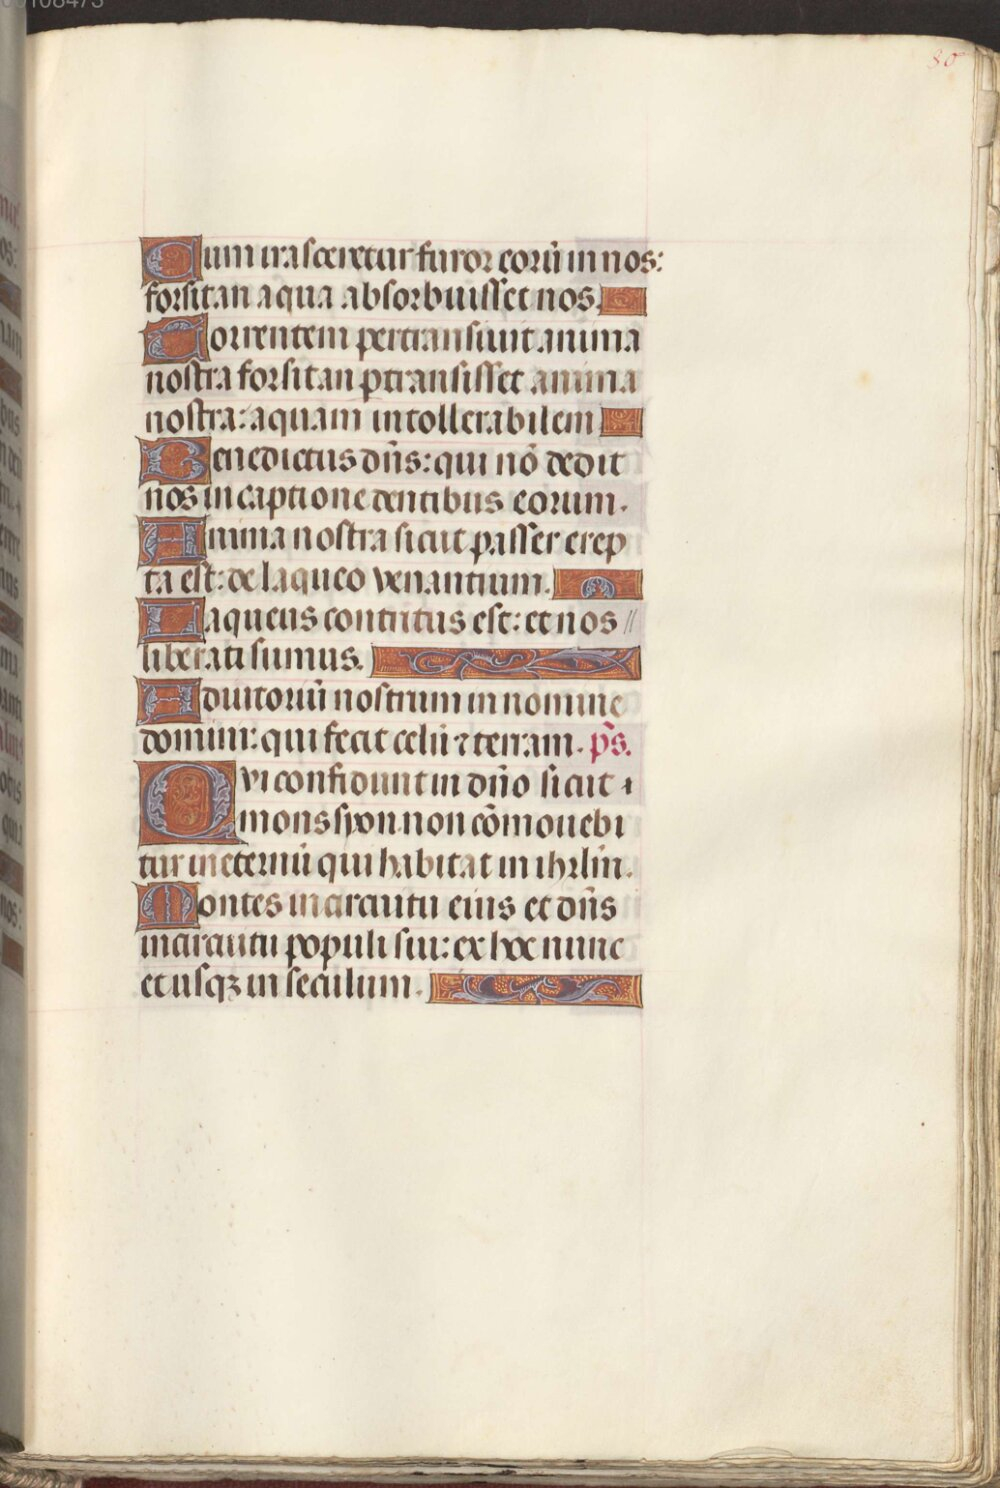 80
Cum irasceretur furor eorū in nos:
forsitan aqua absorbuisset nos.
Torrentem pertransiuit anima
nostra forsitan ꝑtransisset anima
nostra: aquam intollerabilem
Benedictus dn̄s: qui nō dedit
nos in captione dentibus eorum.
Anima nostra sicut passer erep
ta est: de laqueo venantium.
Laqueus contritus est: et nos //
liberati sumus.
Adiutoriū nostrum in nomine
domini: qui fecit celū ⁊ terram. p̄s.
Qvi confidunt in dn̄o sicut
mons syon non cōmouebi
tur in eternū qui habitat in ihrl̄m.
Montes in circuitu eius et dn̄s
in circuitu populi sui: ex hoc nunc
et usqꝫ in seculum.